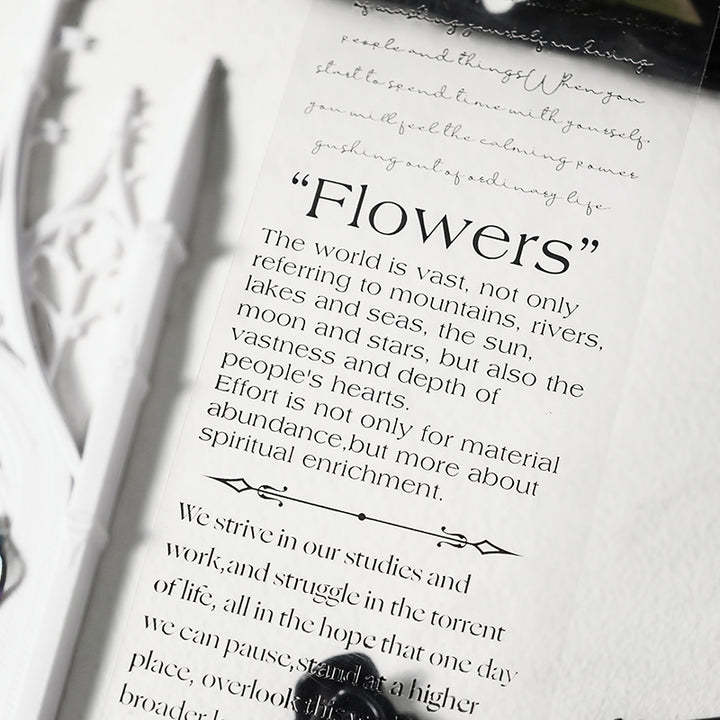 people and things When you
start to spend time with yourself.
you will feel the calming power
gushing out of ordinary life
“Flowers”
The world is vast, not only
referring to mountains, rivers,
lakes and seas, the sun,
moon and stars, but also the
vastness and depth of
people's hearts.
Effort is not only for material
abundance,but more about
spiritual enrichment.
We strive in our studies and
work,and struggle in the torrent
of life, all in the hope that one day
we can pause,stand at a higher
place, overlook this
broader